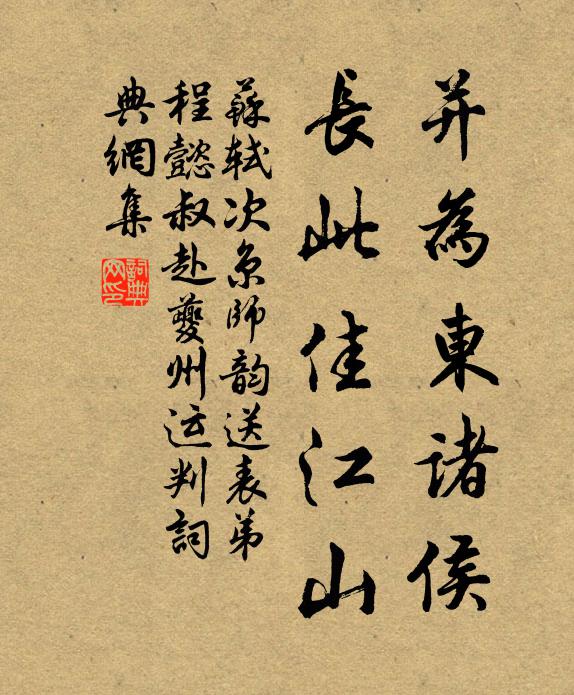 并為東諸侯
長此佳江山
蘇軾次京師韵送表弟
程懿叔赴夔州运判詞
典網集
詞典
网印